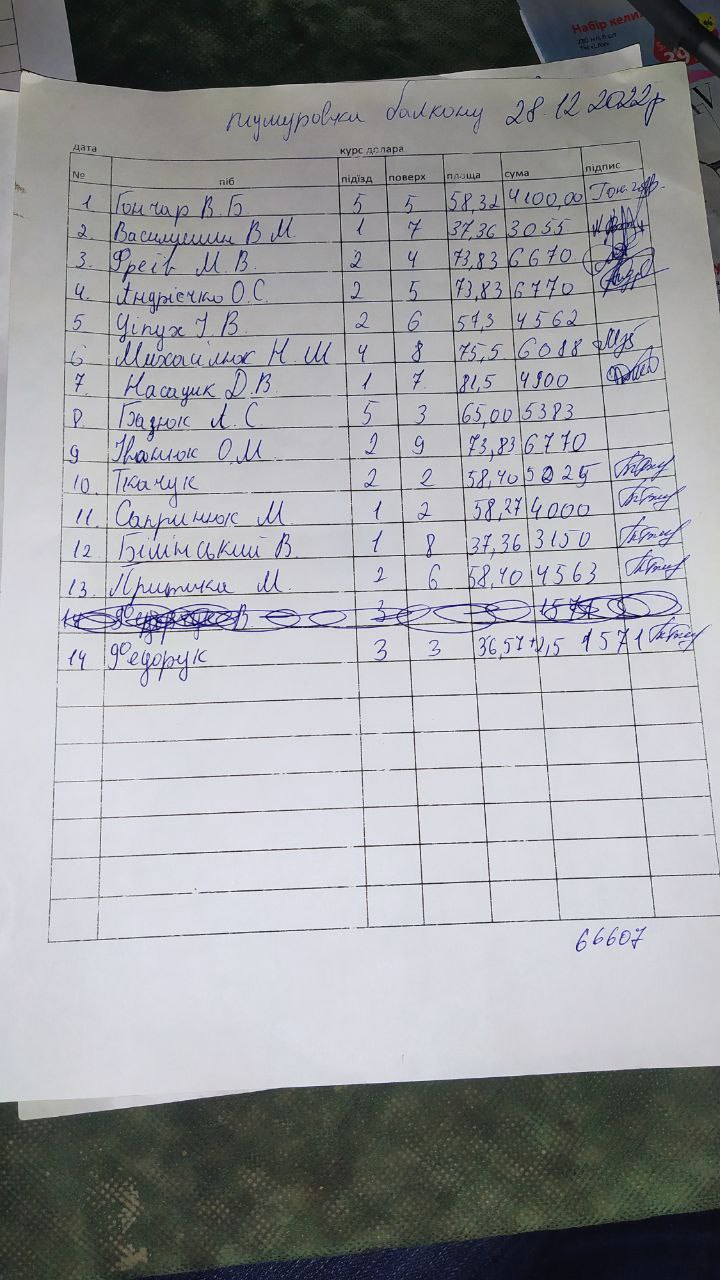 Набір кели
29
%
тумуровка балкону 28.12 2022р
дата курс долара
№ піб підїзд поверх площа сума підпис
1 Гончар В.Б. 5 5 58,32 4100,00
2. Василишин В М. 1 7 37,36 3055
3. Фреїв М.В. 2 4 73,83 6670
4. Андрієчко О.С. 2 5 73,83 6770
5 Ціпух І.В. 2 6 57,3 4562
6 Михайлюк Н.М 4 8 75,5. 6088
7. Насадик Д.В. 1 7. 81,5 4900
8. Бадюк Л.С. 5 3 65,00 5383
9 Іванюк О.М 2 9 73,83 6770
10. Ткачук 2 2 58,40 5025
11. Сапринюк М 1 2 58,27 4000
12. Білінський В. 1 8 37,36 3150
13. Притика М. 2 6 58,40 4563
14 Федорук 3 3 36,57+2,5 1571
66607